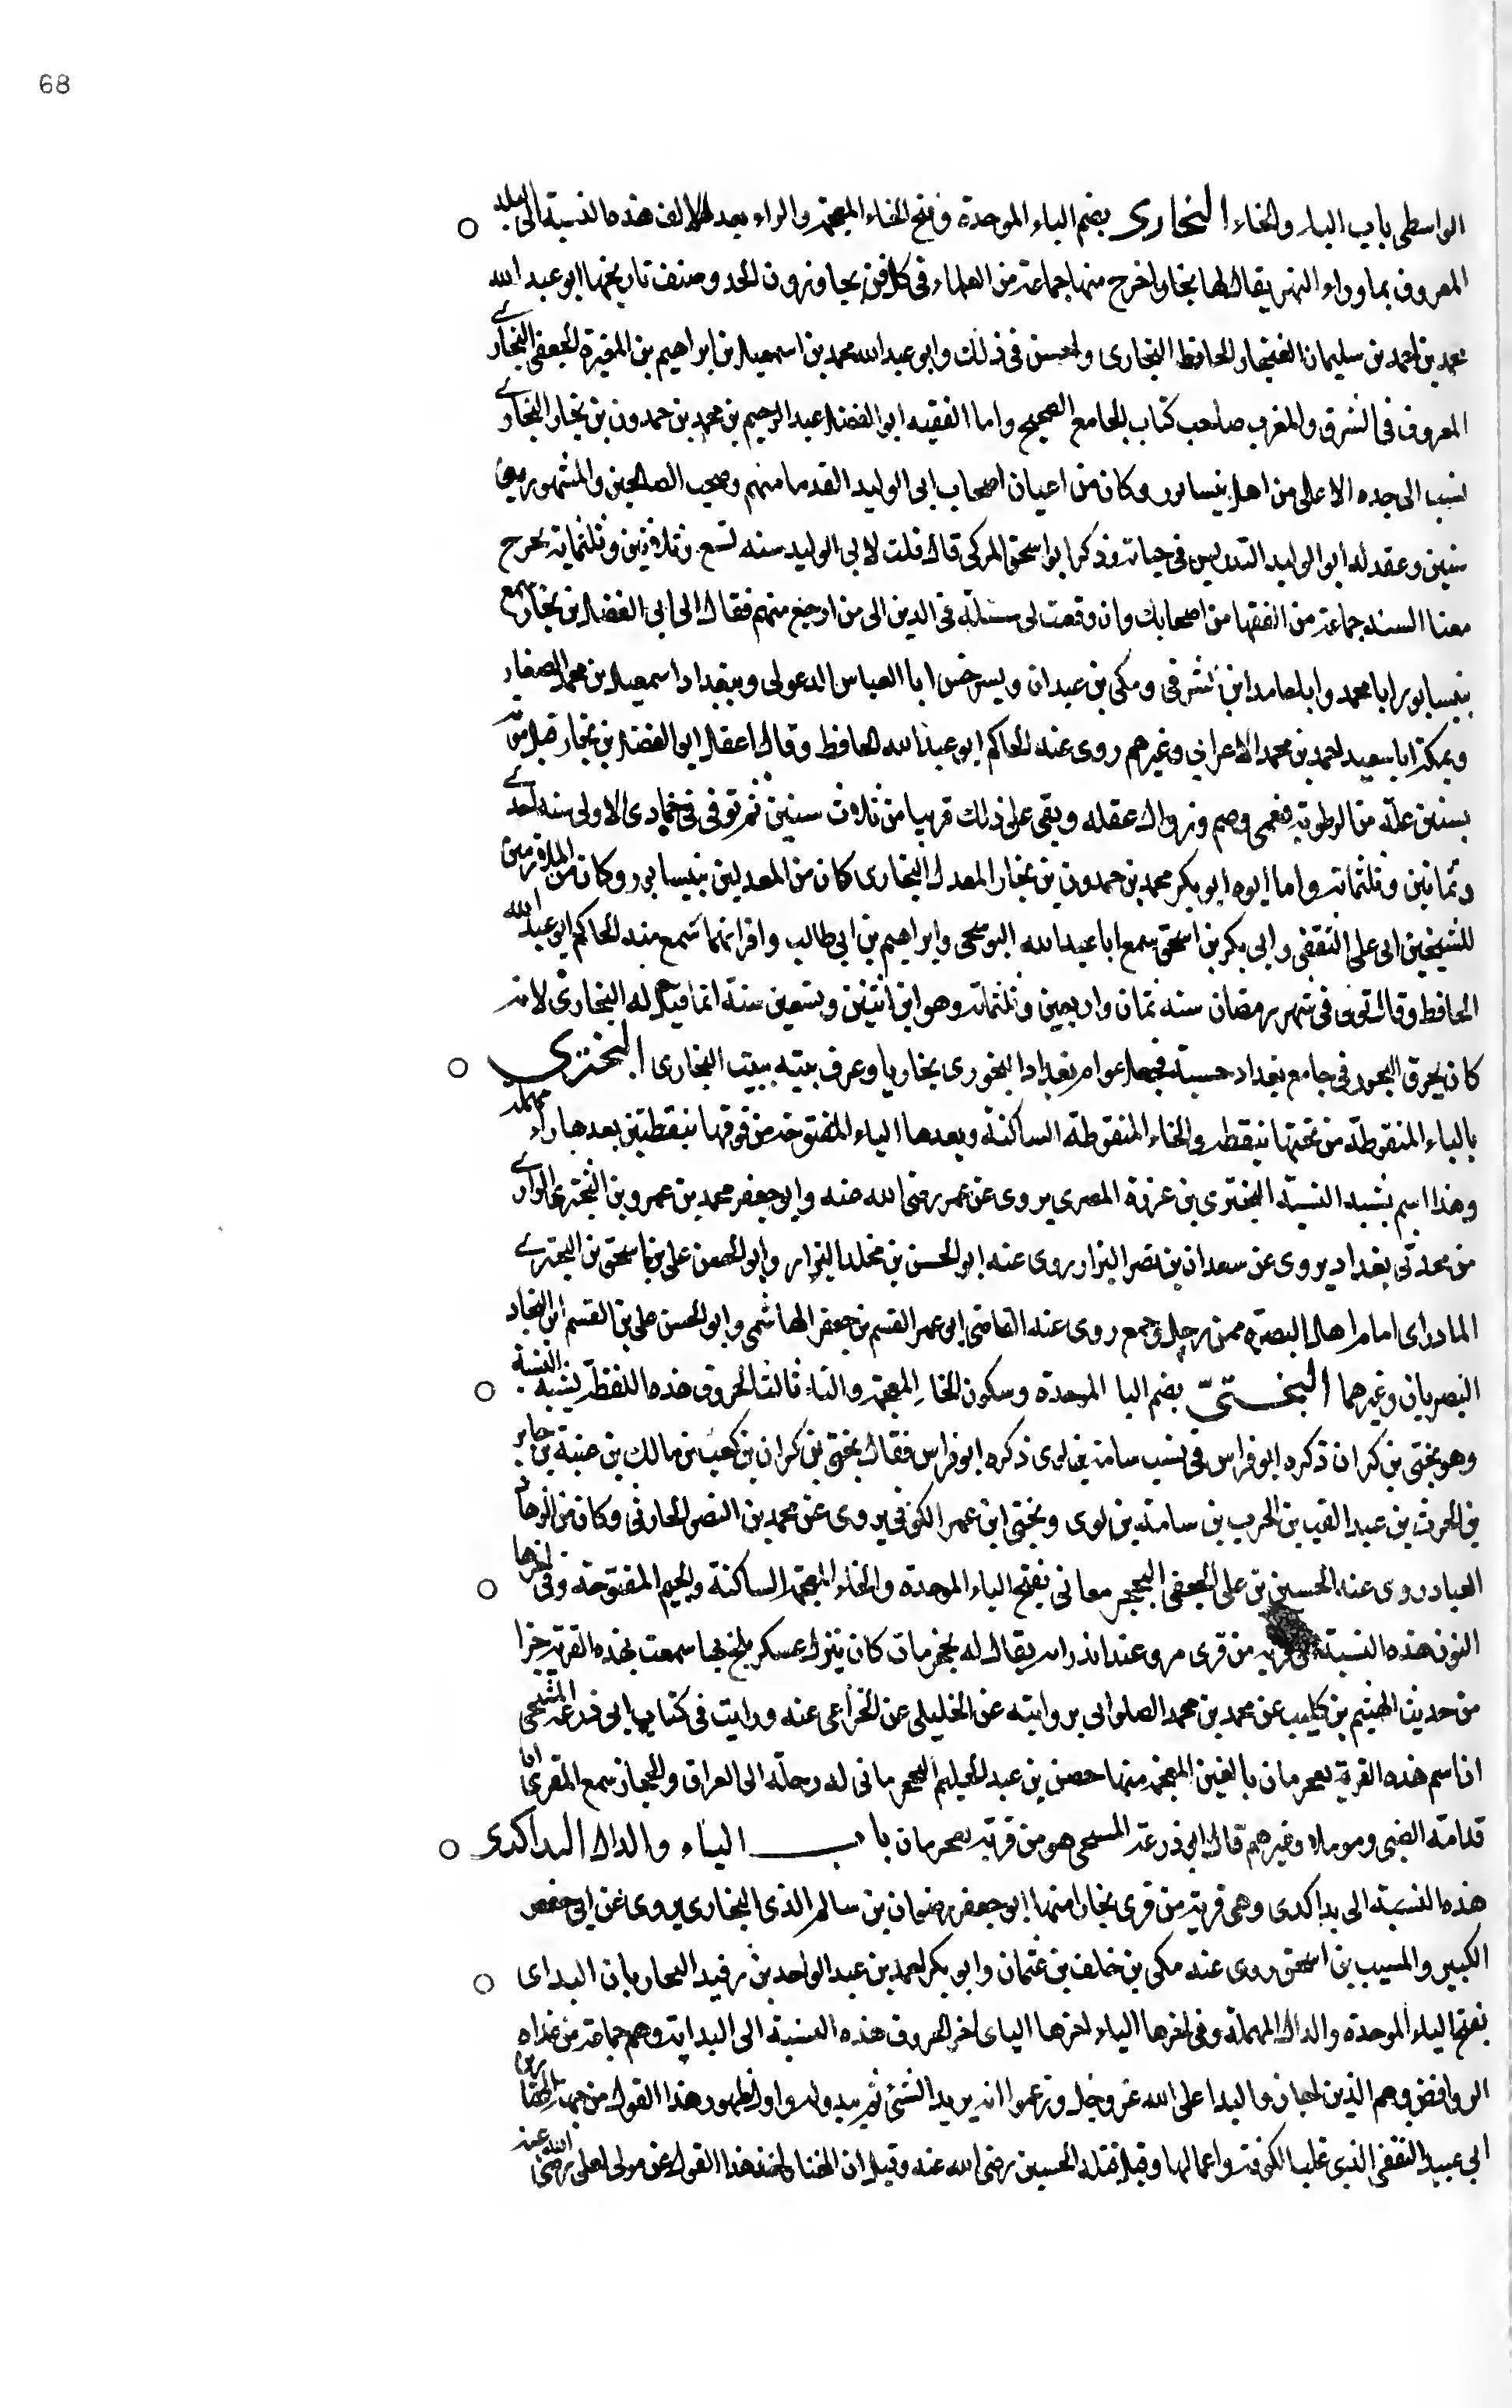 68
الواسطى باب الباء والخاء البخارى بضم الباء الموحدة وفتح الخاء المعجمة والراء بعد الالف هذه النسبة الى البلد
المعروف بما وراء النهر يقال لها بخارا خرج منها جماعة من العلماء فى كل فن يجاوزون الحد وصنف تاريخها ابو عبد الله
محمد بن احمد بن سليمان الغنجار الحافظ البخارى واحسن فى ذلك وابو عبد الله محمد بن اسمعيل بن ابراهيم بن المغيرة الجعفى البخارى
المعروف فى الشرق والمغرب صاحب كتاب الجامع الصحيح واما الفقيه ابو الفضل عبد الرحيم بن محمد بن حمدون بن بخار البخارى
نسب الى جده الاعلى من اهل نيسابور وكان من اعيان اصحاب ابى الوليد القدما منهم وصحب الصالحين والمشهورين
سنين وعقد له ابو الوليد التدريس فى حياته وذكر ابو اسحق المزكى قال قلت لابى الوليد سنه تسع وثلاثين وثلثمايه يخرج
معنا السنه جماعة من الفقها من اصحابك وان وقعت لى مسئلة فى الدين الى من ارجع منهم فقال الى ابى الفضل بن بخار سمع
بنيسابور ابا محمد وابا حامد ابنى الشرقى ومكى بن عبدان وبسرخس ابا العباس الدغولى وببغداد اسمعيل بن محمد الصفار
وبمكة ابا سعيد احمد بن محمد الاعرابى وغيرهم روى عنه الحاكم ابو عبد الله الحافظ وقال اعتقل ابو الفضل بن بخار قبل موته
بسنتين علة من الرطوبة فعمى وصم وزوال عقله وبقى على ذلك قريبا من ثلاث سنين ثم توفى فى جمادى الاولى سنه احدى
وثمانين وثلثمائة واما ابوه ابو بكر محمد بن حمدون بن بخار المعدل البخارى كان من المعدلين بنيسابور وكان من الملازمين
للشيخين ابى على الثقفى وابى بكر بن اسحق سمع ابا عبد الله البوسنجى وابراهيم بن ابى طالب واقرانهما سمع منه الحاكم ابو عبد الله
الحافظ وقال توفى فى شهر رمضان سنه ثمان واربعين وثلثمائة وهو ابن اثنتين وتسعين سنة انما قيل له البخارى لانه
كان يحرق البخور فى جامع بغداد حسبة فجعل عوام بغداد البخورى بخاريا وعرف بيته ببيت البخارى البخترى
بالباء المنقوطة من تحتها بنقطة والخاء المنقوطة الساكنة وبعدها التاء المفتوحة من فوقها بنقطتين بعدها راء مهملة
وهذا اسم يشبه النسبة البخترى بن عزرة المصرى يروى عن عمر رضى الله عنه وابو جعفر محمد بن عمرو بن البخترى الرزاز
من محدثى بغداد يروى عن سعدان بن نصر البزار روى عنه ابو الحسن بن مخلد البزار وابو الحسن على بن اسحق بن البخترى
المادراى امام اهل البصرة ممن رحل وجمع روى عنه القاضى ابو عمر القسم بن جعفر الهاشمى وابو الحسن على بن القسم ابن النجاد
البصريان وغيرهما البختى بضم البا الموحدة وسكون الخاء المعجمة والتاء ثالث الحروف هذه اللفظة تشبه النسبة
وهو بختى بن كران ذكره ابو فراس فى نسب سامة بن لوى ذكره ابو فراس فقال بختى بن كران بن كعب بن مالك بن عتبة بن جابر
بن الحرث بن عبد البيت بن الحرث بن سامة بن لوى وبختى ابن عمر الكوفى يروى عن محمد بن النضر الحارثى وكان من
العباد روى عنه الحسين بن على الجعفى البخجرمانى بفتح الباء الموحدة والخاء المعجمة الساكنة والجيم المفتوحة وفى اخرها
النون هذه النسبة الى قرية من قرى مرو عند اندرابه يقال له بخجرمان كان ينزل عسكر بلخ بها سمعت بهذه القرية جزا
من حديث الهيثم بن كليب عن محمد بن محمد الصلواتى بروايته عن الخليلى عن الخزاعى عنه ورايت فى كتاب ابى زرعة السنجى
ان اسم هذه القرية بغجرمان بالغين المعجمة منها حصين بن عبد الحليم البخجرمانى له رحلة الى العراق والحجاز سمع المقرى ابا
قدامة الضبى وموملا وغيرهم قال ابو زرعة السنجى هو من قرية بغجرمان باب الباء والدال البداكدى
هذه النسبة الى بداكدى وهى قرية من قرى بخارا منها ابو جعفر رضوان بن سالم الذى البخارى يروى عن ابى حفص
الكبير والمسيب بن اسحق روى عنه مكى بن خلف بن عثمان وابو بكر احمد بن عبد الواحد بن رفيد البخاريان البداى
بفتح الباء الموحدة والدال المهملة وفى اخرها الياء اخرها الياى اخر الحروف هذه النسبة الى البداية وهم جماعة من غلاة
الروافض وهم الذين اجازوا البدا على الله عز وجل وزعموا انه يريد الشئ ثم يبدو له واول ظهور هذا القول من جهة المختار بن
ابى عبيد الثقفى الذى غلب الكوفة واعمالها وقتل قتلة الحسين رضى الله عنه وقيل ان المختار اخذ هذا القول عن مولى لعلى رضى الله عنه